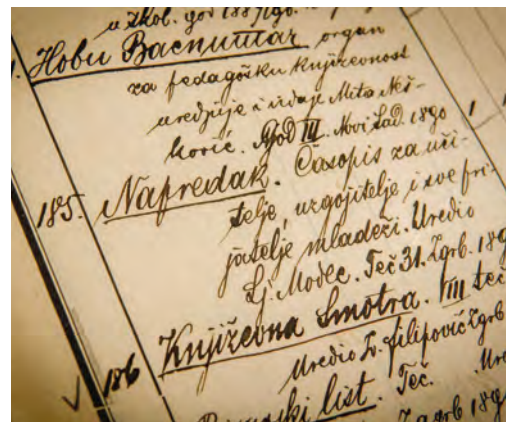 u škol. god 1889/90.
Нови Васпитач organ
za pedagošku književnost
uredjuje i izdaje Mita Neš-
ković. God III. Novi Sad. 1890 1
185. Napredak. Časopis za uči-
telje, uzgojitelje i sve pri-
jatelje mladeži. Uredio
Lj. Modec. Teč 31. Zgrb. 189
186 Književna Smotra. VIII teč
Uredio Lj. Filipović Zgrb
list. Teč. Ure
Zagrb 18